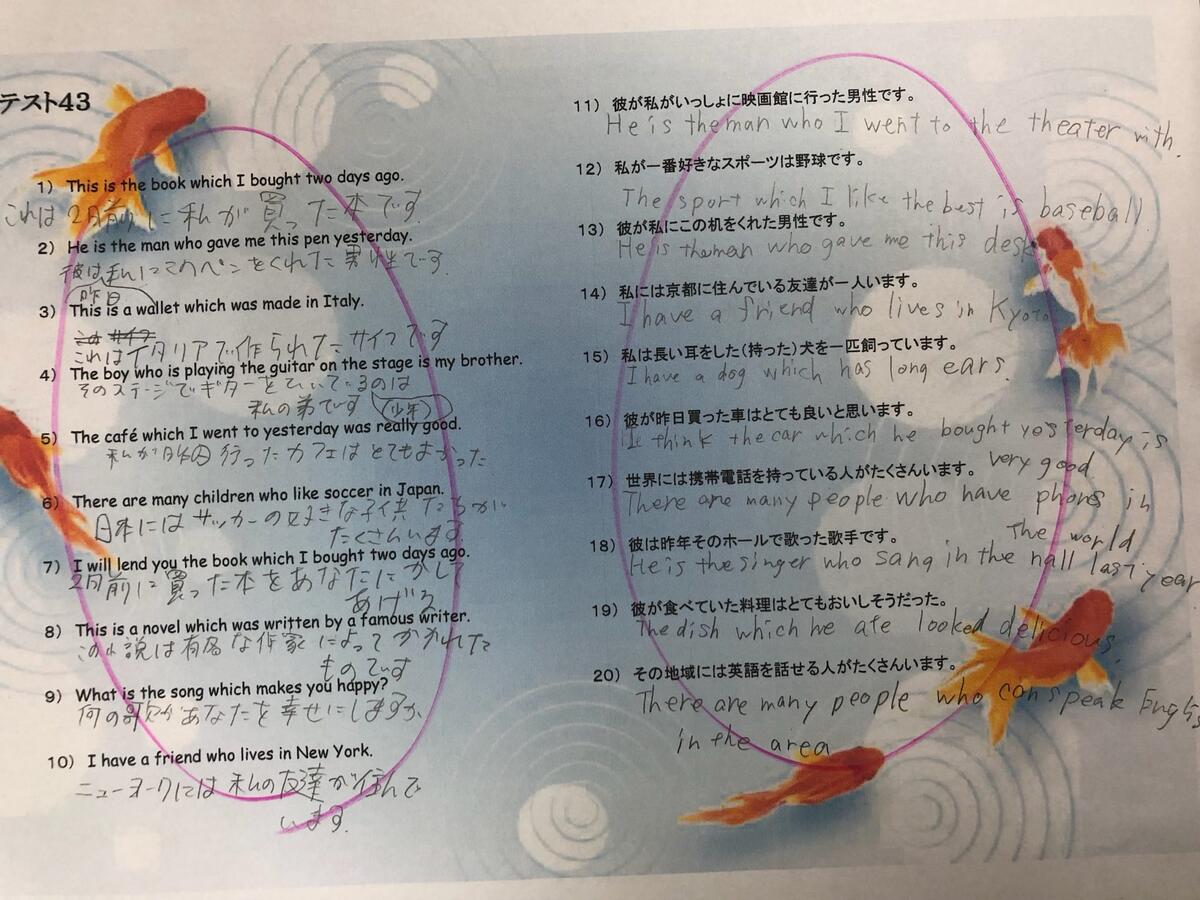 テスト43
1) This is the book which I bought two days ago.
これは2日前に私が買った本です
2) He is the man who gave me this pen yesterday.
彼は私にこのペンをくれた男性です.
昨日
3) This is a wallet which was made in Italy.
これはイタリアで作られたサイフです
4) The boy who is playing the guitar on the stage is my brother.
そのステージでギターをひいているのは
私の弟です (少年)
5) The café which I went to yesterday was really good.
私が昨日行ったカフェはとてもよかった
6) There are many children who like soccer in Japan.
日本にはサッカーの好きな子供たちが
たくさんいます.
7) I will lend you the book which I bought two days ago.
2日前に買った本をあなたにかして
あげる
8) This is a novel which was written by a famous writer.
この小説は有名な作家によってかかれた
ものです
9) What is the song which makes you happy?
何の歌があなたを幸せにしますか
10) I have a friend who lives in New York.
ニューヨークには私の友達が住んで
います.
11) 彼が私がいっしょに映画館に行った男性です。
He is the man who I went to the theater with.
12) 私が一番好きなスポーツは野球です。
The sport which I like the best is baseball
13) 彼が私にこの机をくれた男性です。
He is the man who gave me this desk
14) 私には京都に住んでいる友達が一人います。
I have a friend who lives in Kyoto
15) 私は長い耳をした(持った)犬を一匹飼っています。
I have a dog which has long ears.
16) 彼が昨日買った車はとても良いと思います。
I think the car which he bought yesterday is
very good
17) 世界には携帯電話を持っている人がたくさんいます。
There are many people who have phones in
The world
18) 彼は昨年そのホールで歌った歌手です。
He is the singer who sang in the hall last year
19) 彼が食べていた料理はとてもおいしそうだった。
The dish which he ate looked delicious.
20) その地域には英語を話せる人がたくさんいます。
There are many people who can speak Englis
in the area